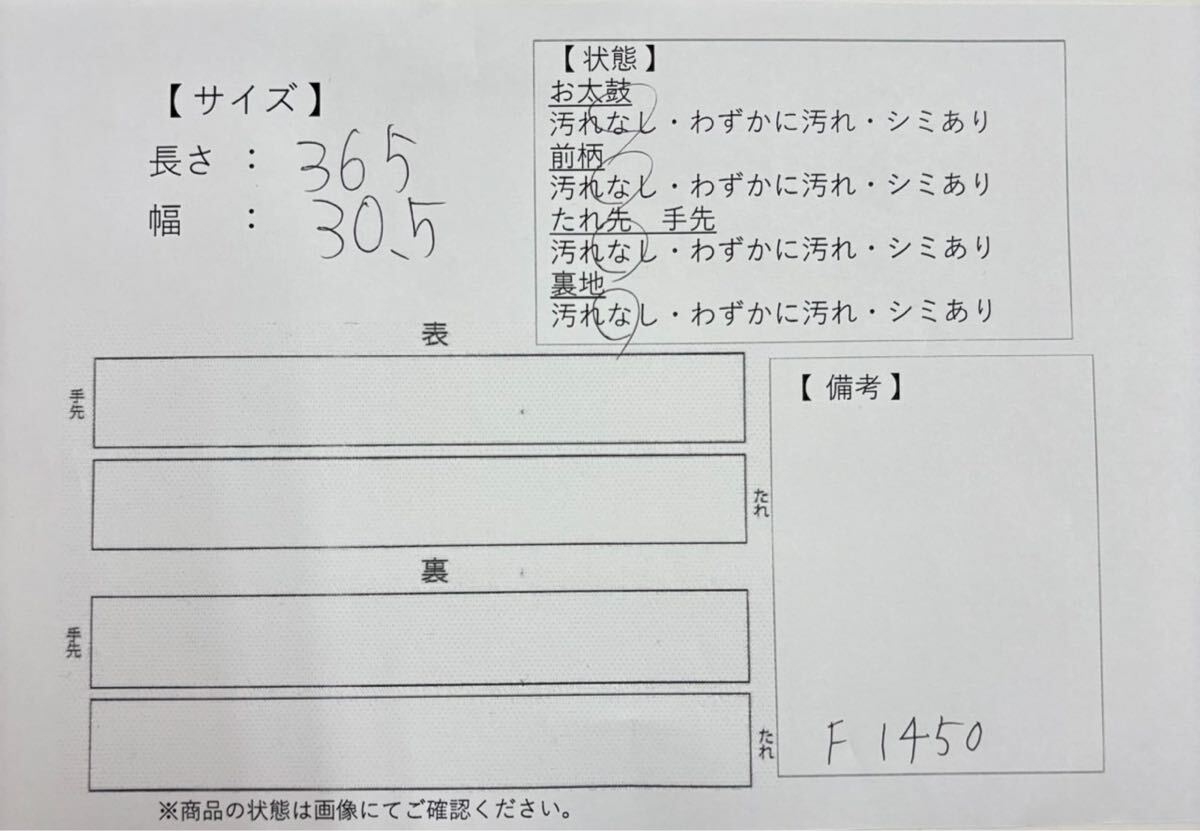 【サイズ】
長さ ： 365
幅 ： 30.5
【状態】
お太鼓
汚れなし・わずかに汚れ・シミあり
前柄
汚れなし・わずかに汚れ・シミあり
たれ先 手先
汚れなし・わずかに汚れ・シミあり
裏地
汚れなし・わずかに汚れ・シミあり
表
手先
たれ
裏
手先
たれ
【備考】
F 1450
※商品の状態は画像にてご確認ください。